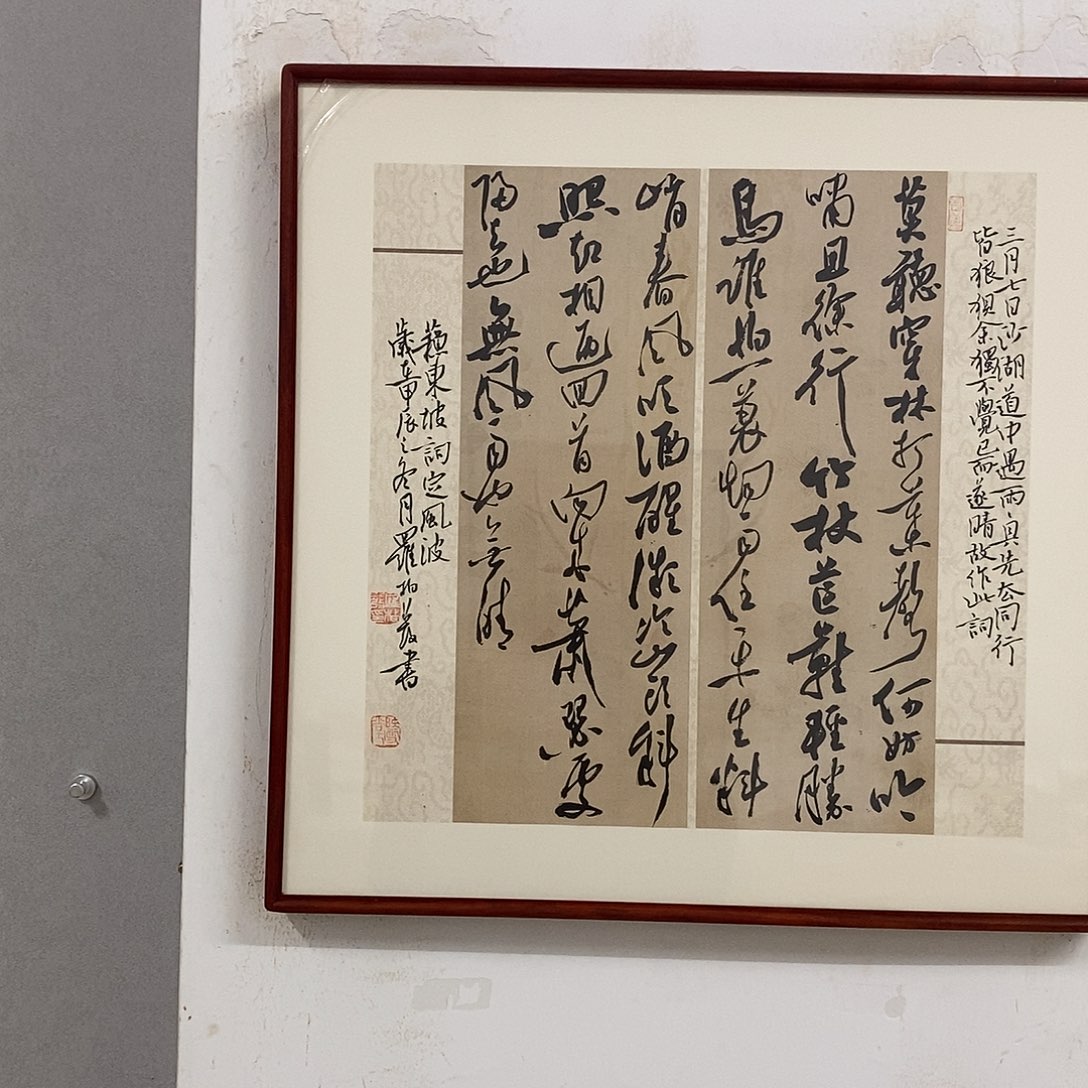 三月七日沙湖道中遇雨々具先去同行
皆狼狽余獨不覺已而遂晴故作此詞
莫聽穿林打葉聲何妨吟
嘯且徐行竹杖芒鞋輕勝
馬誰怕一蓑烟雨任平生料
峭春風吹酒醒微冷山頭斜
照却相迎回首向来蕭瑟處
歸去也無風雨也無晴
蘇東坡詞定風波
歲在甲辰之冬月羅柏書